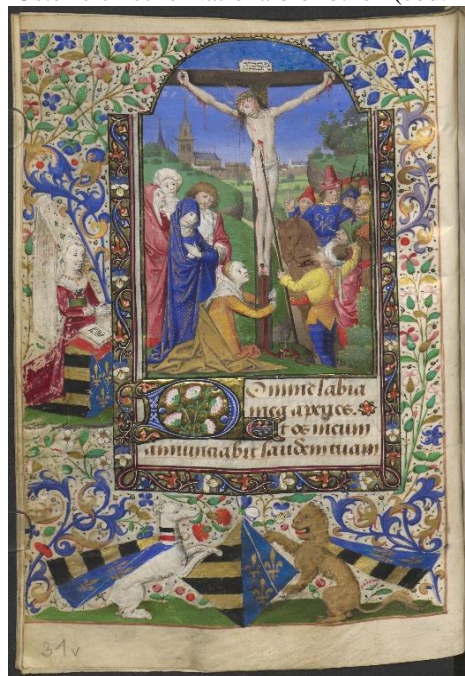 Domine labia
mea aperies.
Et os meum
annunciabit laudem tuam
31v